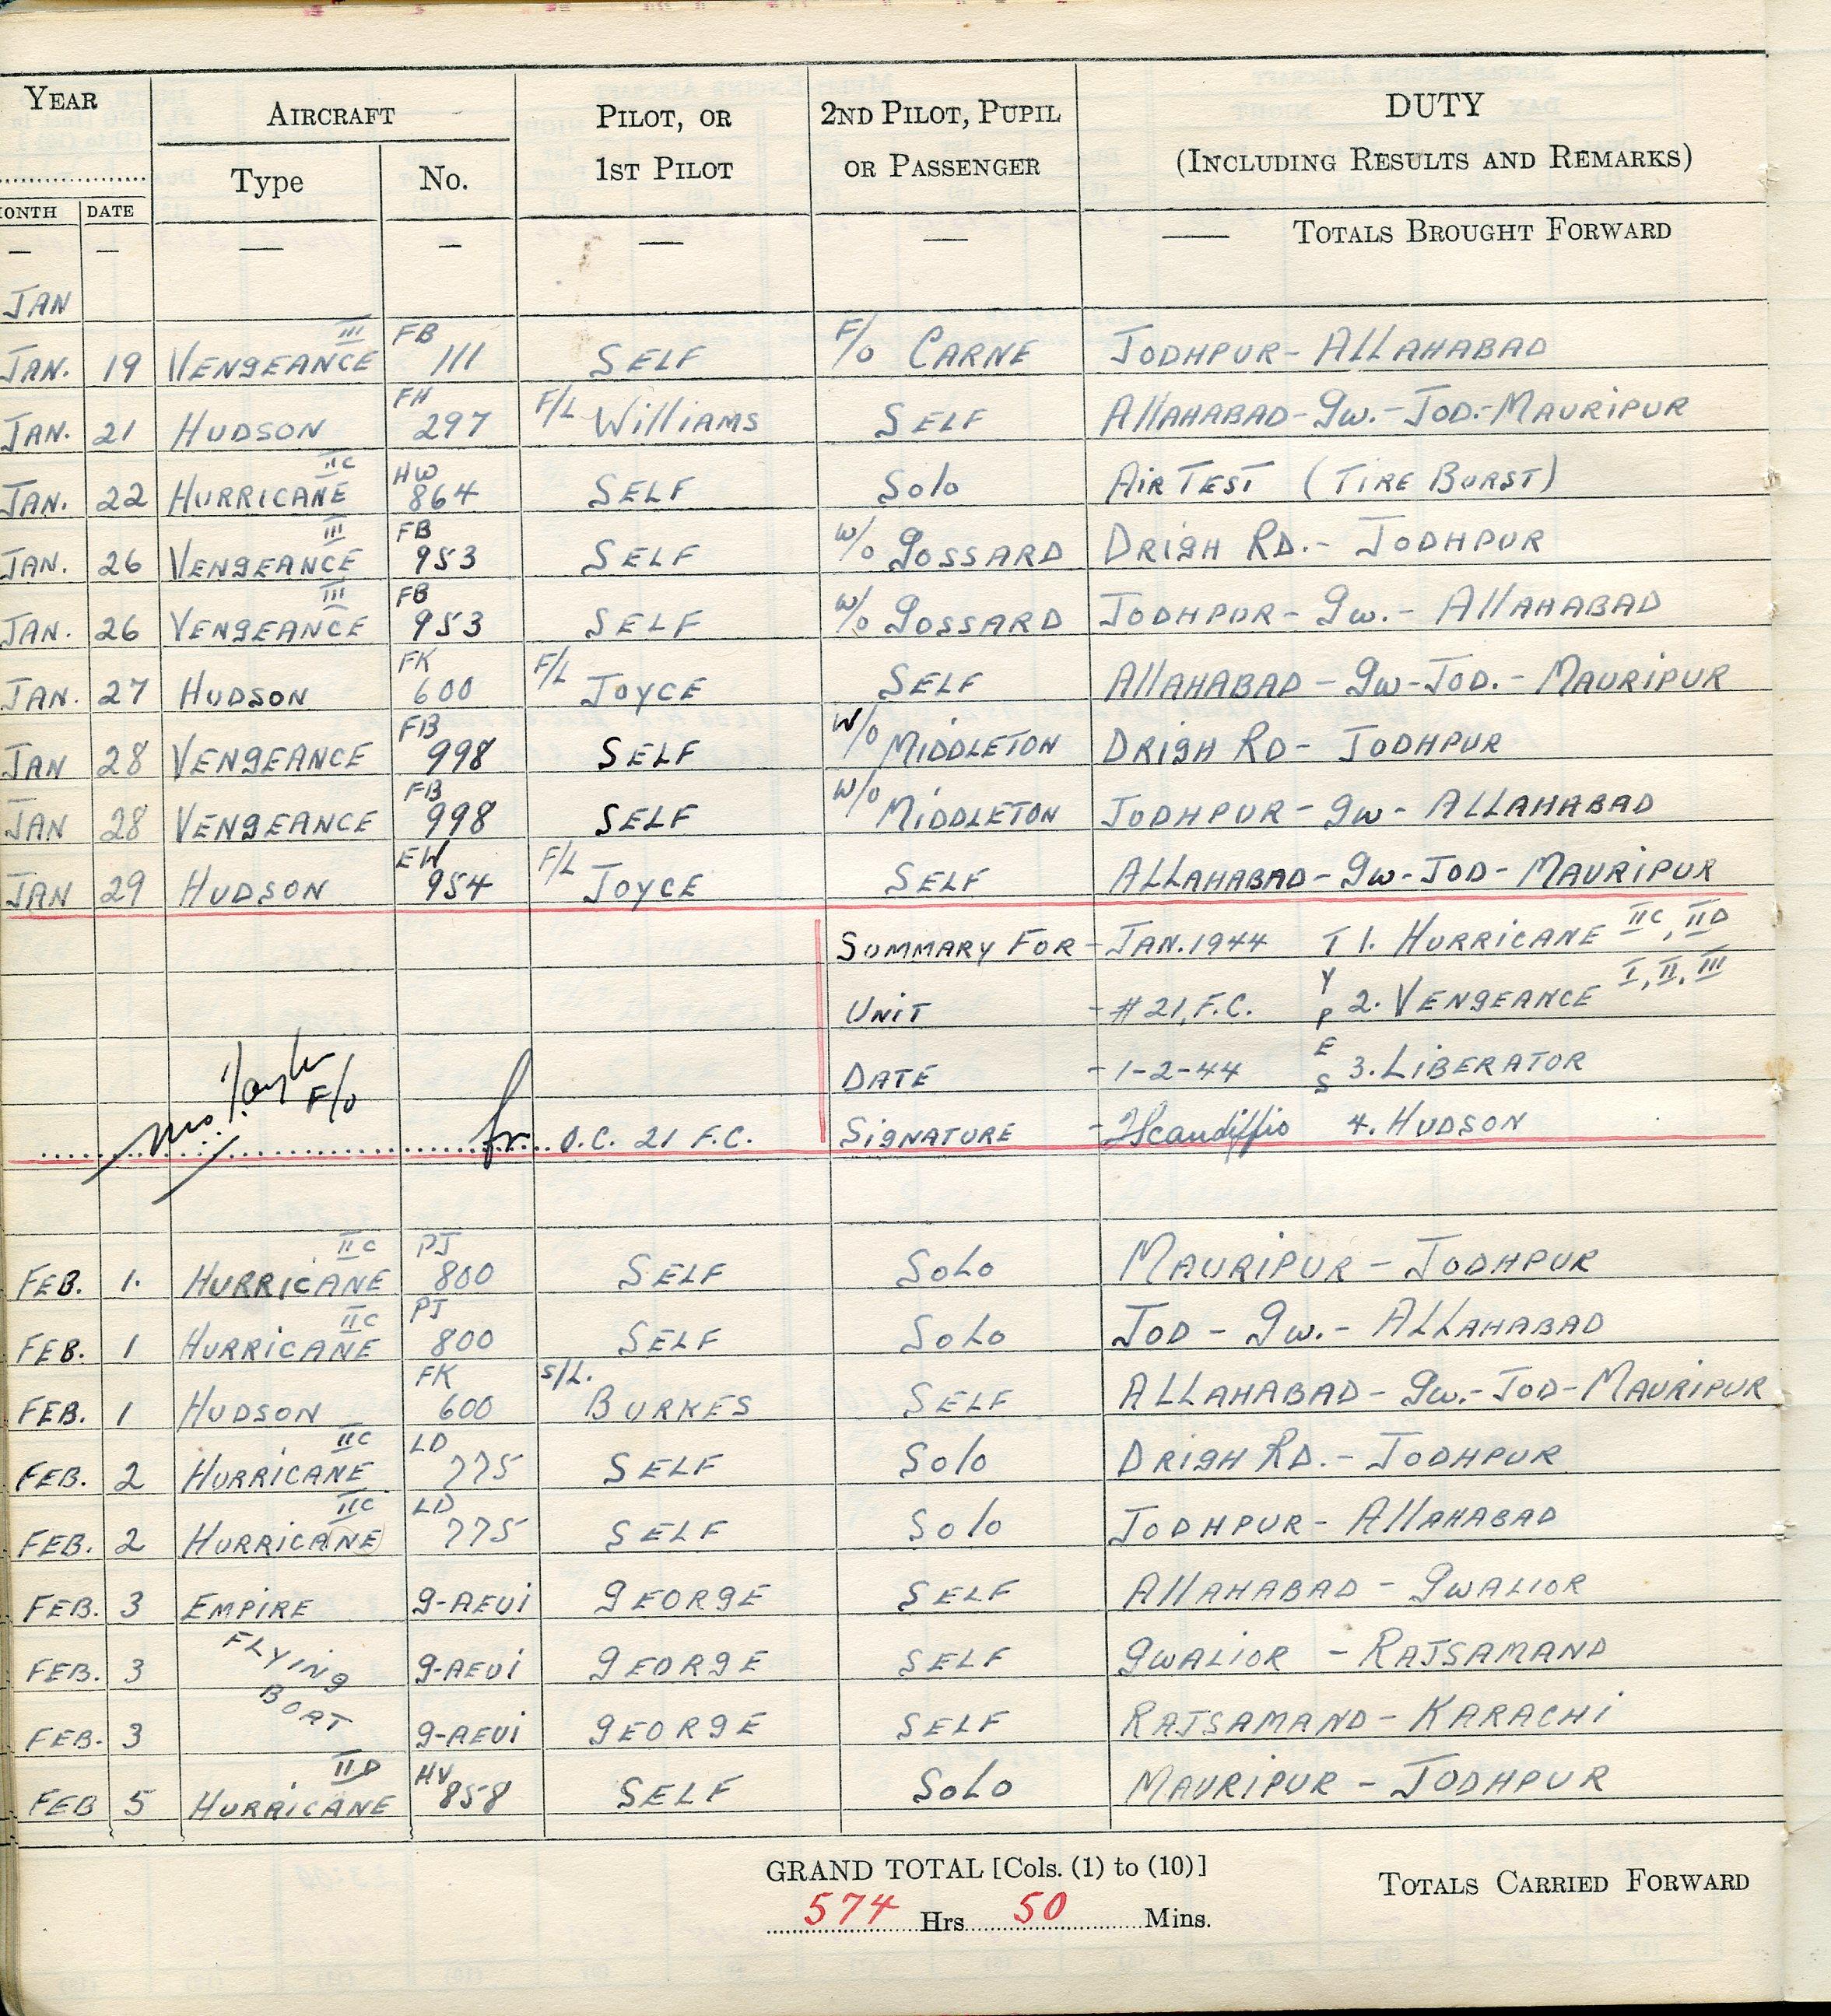 YEAR AIRCRAFT PILOT, OR 2ND PILOT, PUPIL DUTY
Type No. 1ST PILOT OR PASSENGER (INCLUDING RESULTS AND REMARKS)
ONTH DATE
— — — — — — —— TOTALS BROUGHT FORWARD
JAN
JAN. 19 VENGEANCE III FB 111 SELF F/O CARNE JODHPUR - ALLAHABAD
JAN. 21 HUDSON FH 297 F/L WilliAMS SELF AllAHABAD - GW. - JOD. - MAURiPUR
JAN. 22 HURRICANE IIC HW 864 SELF Solo AiR TEST (TiRE BURST)
JAN. 26 VENGEANCE III FB 953 SELF W/O GOSSARD DRIGH RD. - JODHPUR
JAN. 26 VENGEANCE III FB 953 SELF W/O GOSSARD JODHPUR - GW. - AllAHABAD
JAN. 27 HUDSON FK 600 F/L JOYCE SELF AllAHABAD - GW - JOD. - MAURiPUR
JAN 28 VENGEANCE FB 998 SELF W/O MiDDLETON DRIGH RD - JODHPUR
JAN 28 VENGEANCE FB 998 SELF W/O MiDDLETON JODHPUR - GW - ALLAHABAD
JAN 29 HUDSON EW 954 F/L JOYCE SELF ALLAHABAD - GW - JOD - MAURiPUR
SUMMARY FOR - JAN. 1944 TYPES 1. HURRiCANE IIC, IID
UNiT - #21, F.C. 2. VENGEANCE I, II, III
DATE - 1-2-44 3. LiBERATOR
F/O fr. O.C. 21 F.C. SiGNATURE - Scandiffio 4. HUDSON
FEB. 1. HURRiCANE IIC PJ 800 SELF SoLo MAURiPUR - JODHPUR
FEB. 1 HURRiCANE IIC PJ 800 SELF SoLo JOD - GW. - ALLAHABAD
FEB. 1 HUDSON FK 600 S/L. BURKES SELF ALLAHABAD - GW. - JOD - MAURiPUR
FEB. 2 HURRiCANE IIC LD 775 SELF Solo DRiGH RD. - JODHPUR
FEB. 2 HURRiCANE IIC LD 775 SELF Solo JODHPUR - AllAHABAD
FEB. 3 EMPiRE G-AEUi GEORGE SELF AllAHABAD - GWALIOR
FEB. 3 FLYiNG BOAT G-AEUi GEORGE SELF GWALiOR - RAJSAMAND
FEB. 3 G-AEUi GEORGE SELF RAJSAMAND - KARACHi
FEB 5 HURRiCANE IID HV 858 SELF SoLo MAURiPUR - JODHPUR
GRAND TOTAL [Cols. (1) to (10)] TOTALS CARRIED FORWARD
574 Hrs. 50 Mins.